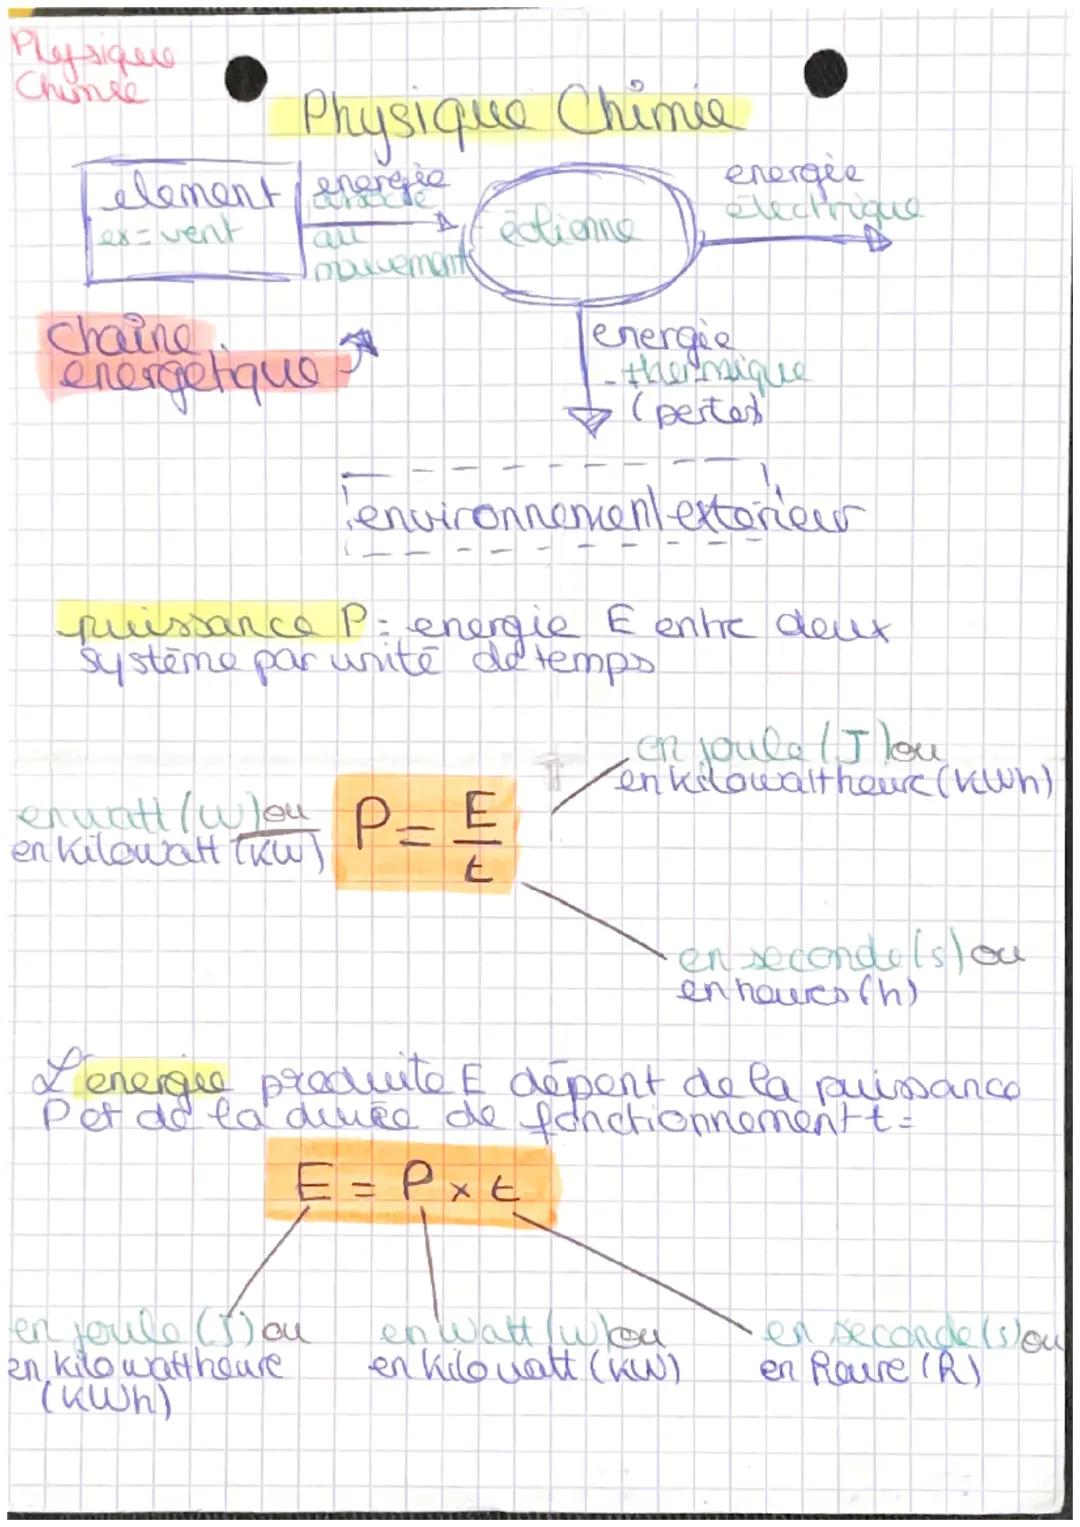 Physique
Chimie
Physique Chimie
element
ex = vent
energie
associé
au
mouvement
éolienne
energie
électrique
chaîne
energetique
energie
thermique
(pertes)
environnement exterieur
puissance P = energie E entre deux
système par unité de temps
en joule (J) ou
en kilowattheure (kWh)
en watt (W) ou
en kilowatt (KW)
P = E
t
en seconde (s) ou
en heures (h)
L'energie produite E dépent de la puissance
P et de la durée de fonctionnement t =
E = P x t
en joule (J) ou
en kilowattheure
(KWh)
en Watt (W) ou
en kilowatt (KW)
en seconde (s) ou
en heure (h)